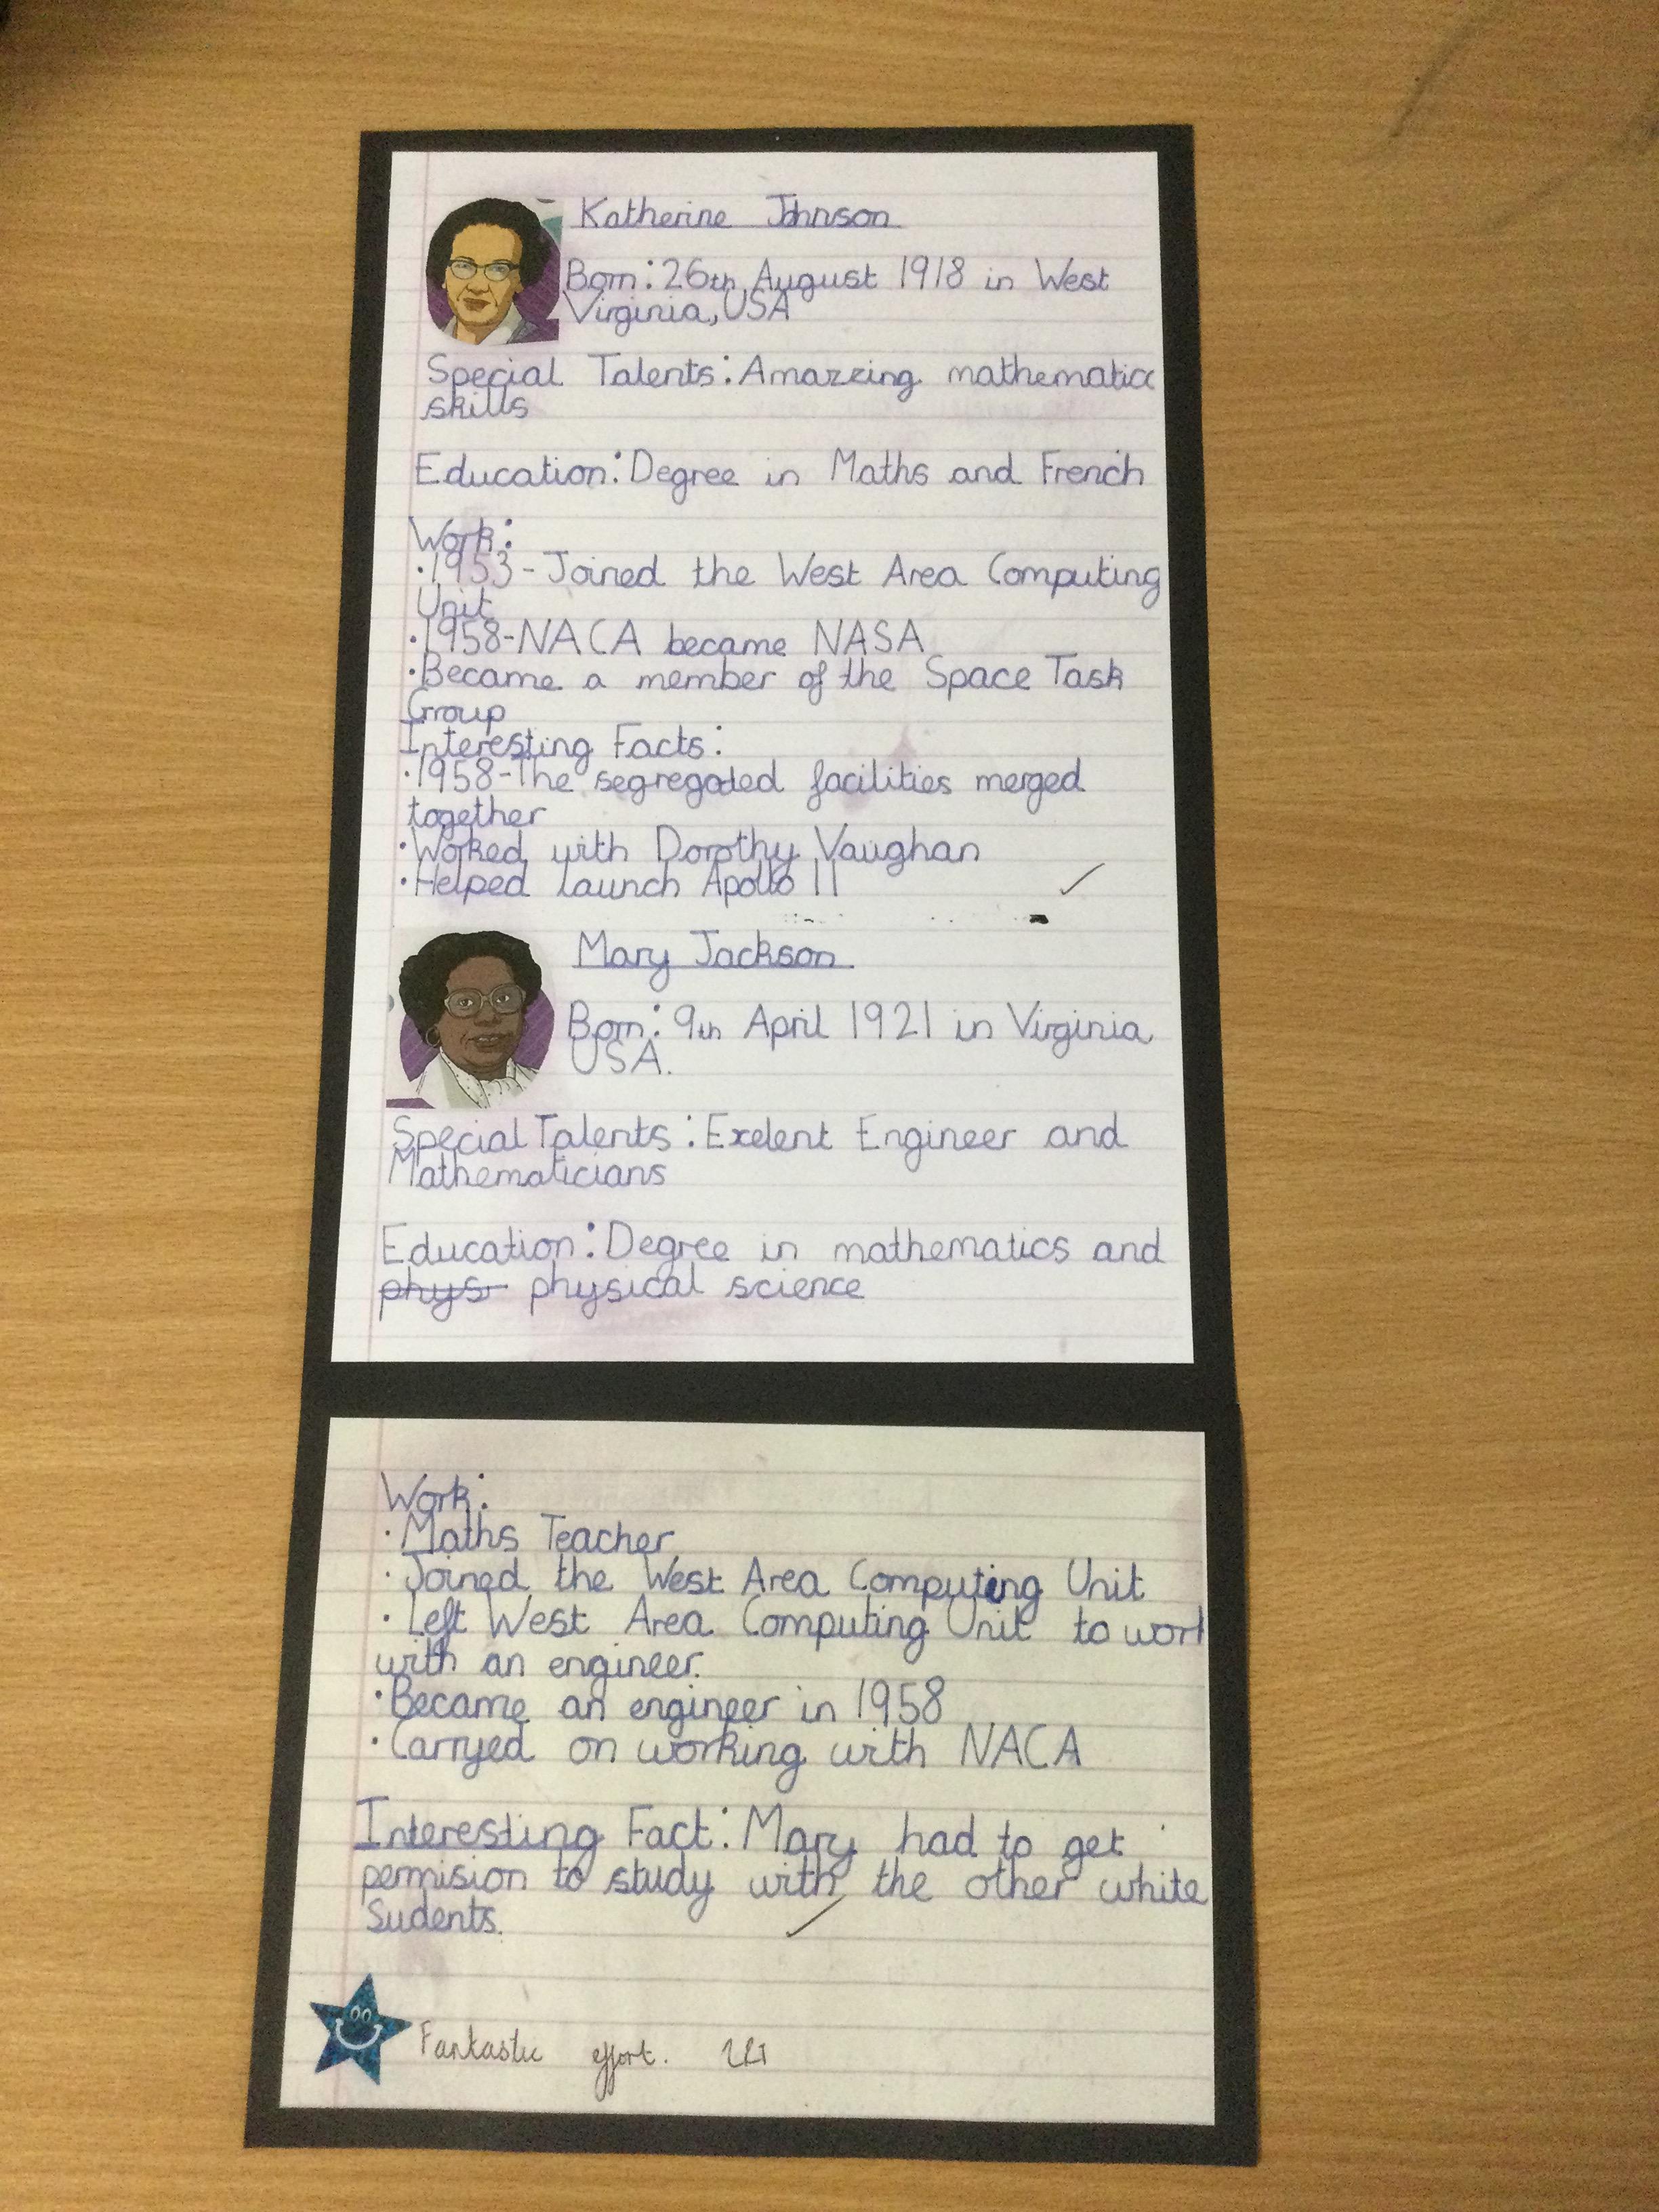 Katherine Johnson
Born: 26th August 1918 in West
Virginia, USA
Special Talents: Amazzing mathematic
skills
Education: Degree in Maths and French
Work:
•1953-Joined the West Area Computing
Unit
•1958-NACA became NASA
•Became a member of the Space Task
Group
Interesting Facts:
•1958-The segregated facilities merged
together
•Worked with Dorothy Vaughan
•Helped launch Apollo 11
Mary Jackson
Born: 9th April 1921 in Virginia
USA.
Special Talents: Exelent Engineer and
Mathematicians
Education: Degree in mathematics and
phys physical science
Work:
• Maths Teacher
• Joined the West Area Computing Unit
• Left West Area Computing Unit to work
with an engineer.
•Became an engineer in 1958
•Carryed on working with NACA
Interesting Fact: Mary had to get
permision to study with the other white
Sudents.
Fantastic effort.